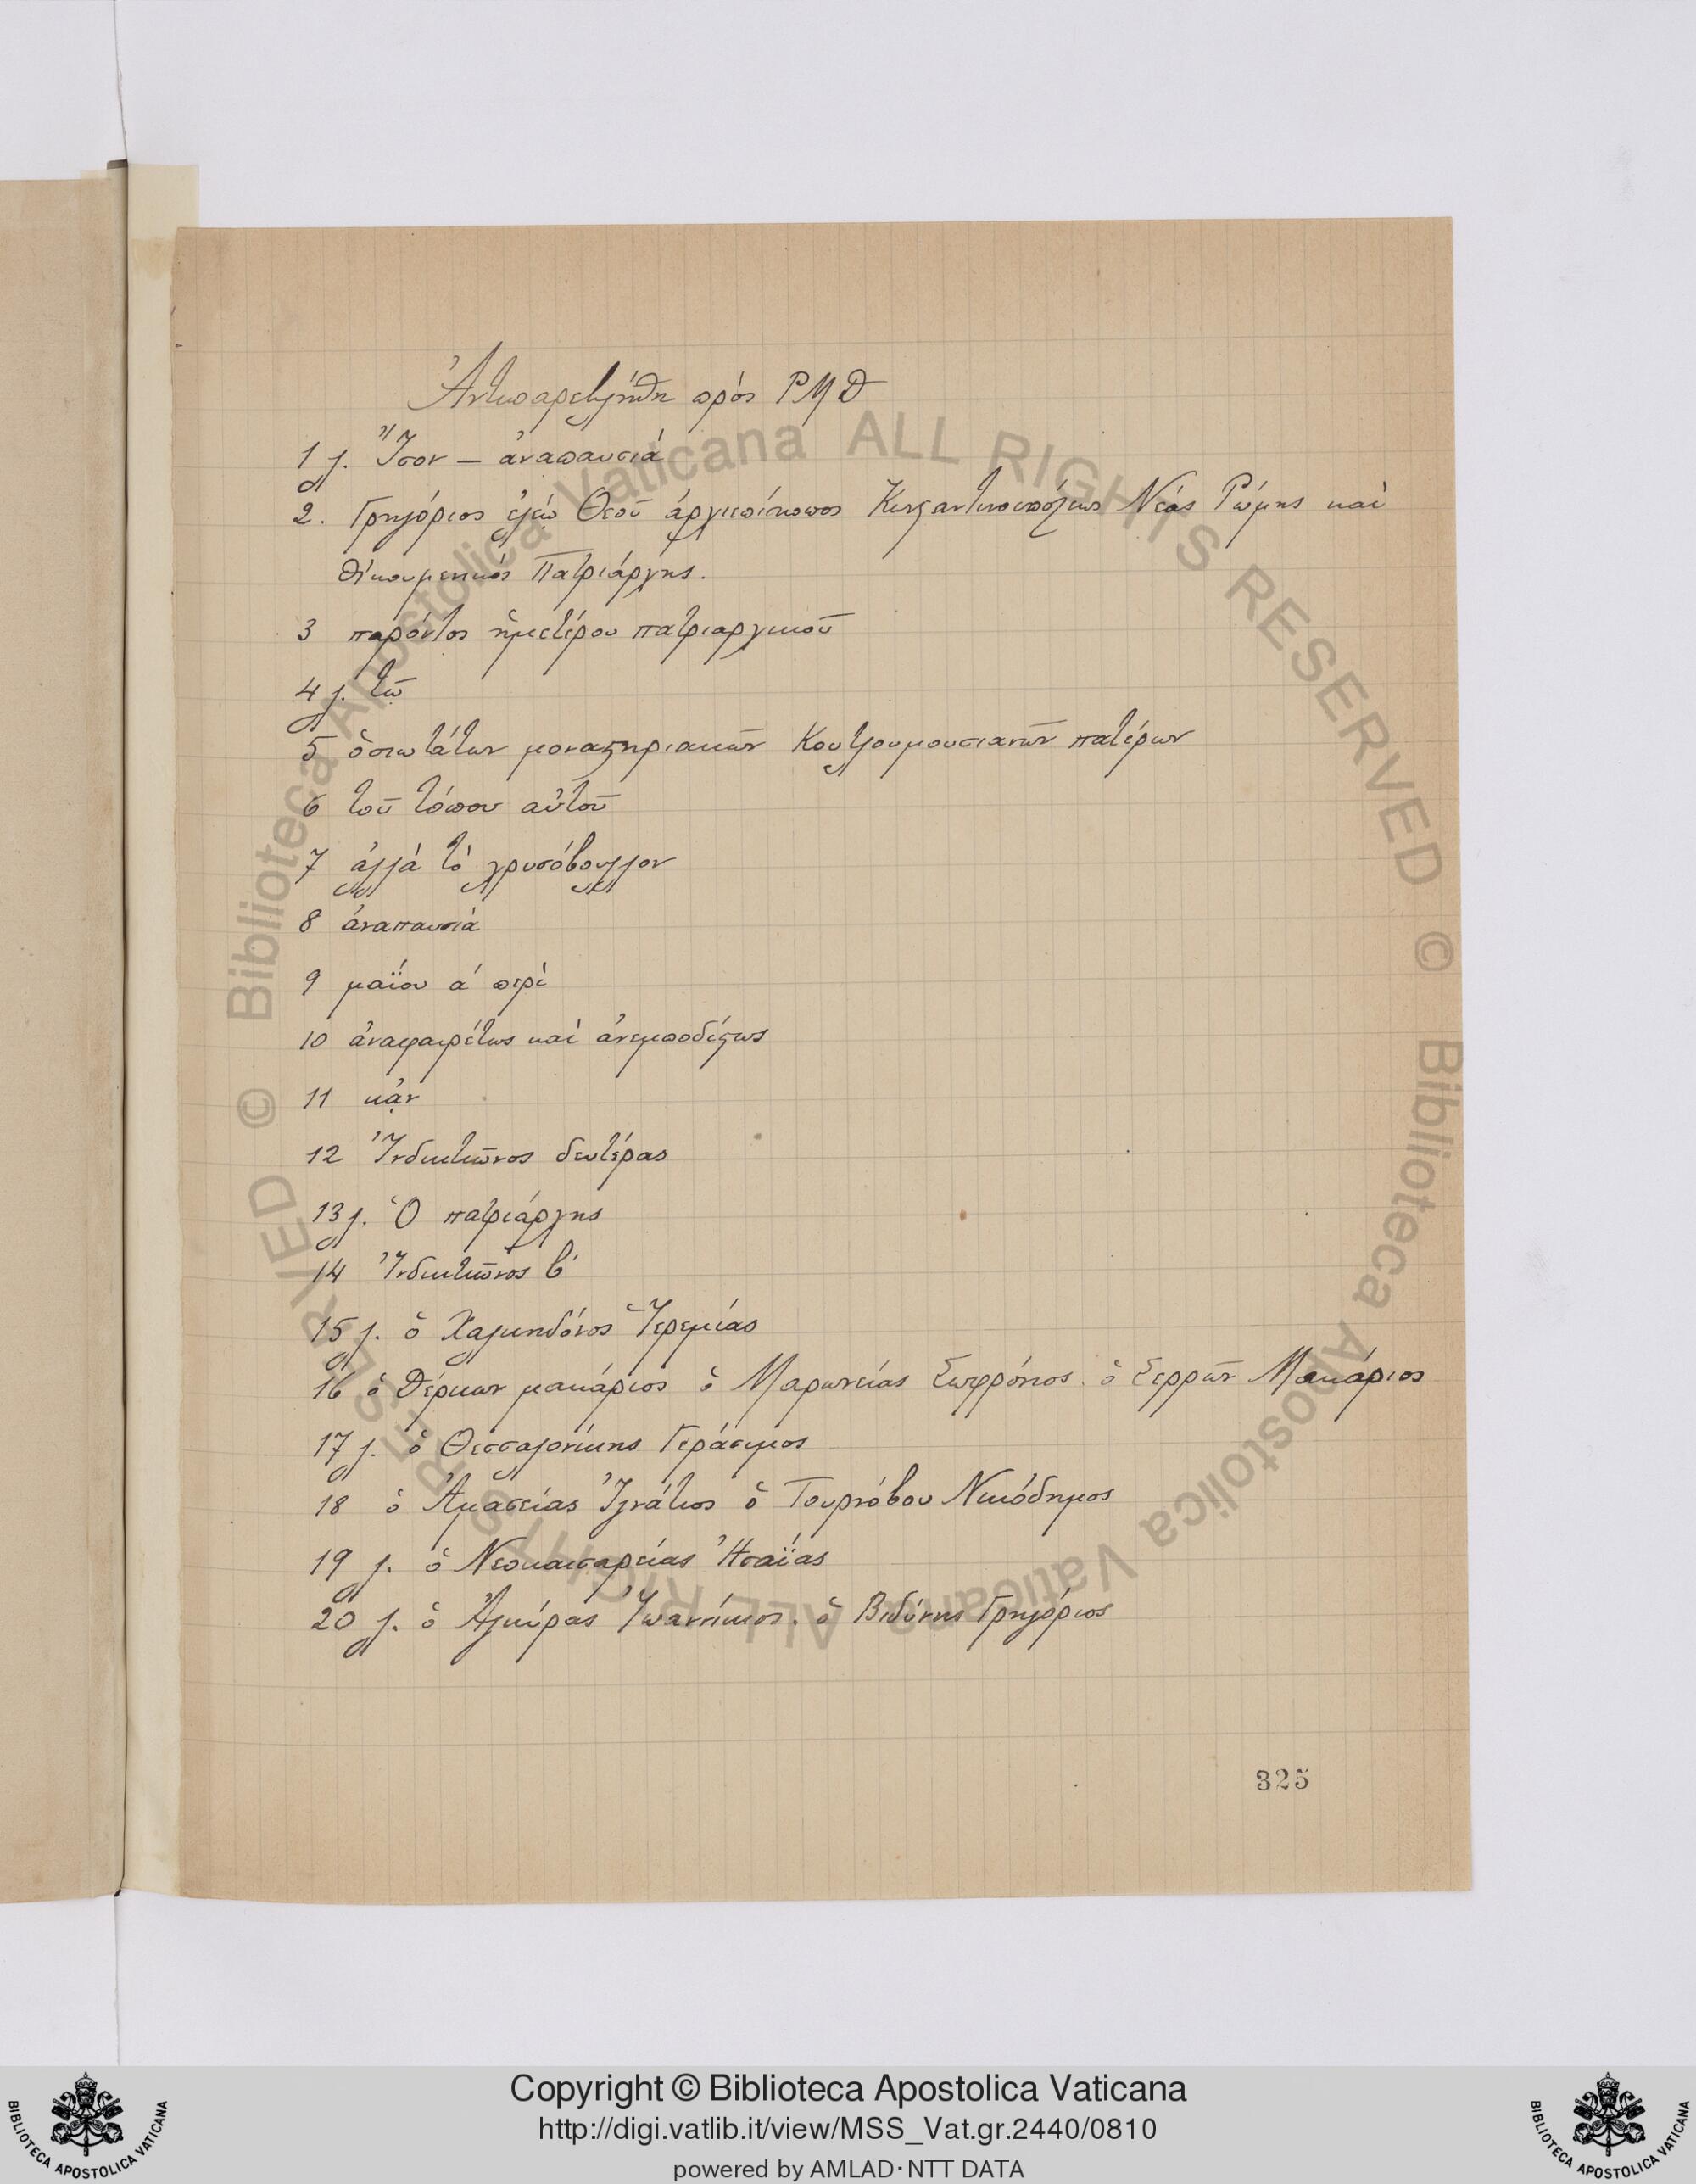 Ἀντιπαρεβλήθη πρὸς ΡΜΘ
1 λ. Ἴσον — ἀναπαυσιά
2. Γρηγόριος ἐλέῳ Θεοῦ ἀρχιεπίσκοπος Κωνσταντινουπόλεως Νέας Ῥώμης καὶ
Οἰκουμενικὸς Πατριάρχης.
3 παρόντος ἡμετέρου πατριαρχικοῦ
4 λ. τῷ
5 ὁσιωτάτων μοναστηριακῶν Κουτλουμουσιανῶν πατέρων
6 τοῦ τόπου αὐτοῦ
7 ἀλλὰ τὸ χρυσόβουλλον
8 ἀναπαυσιὰ
9 μαΐου α΄ περὶ
10 ἀναφαιρέτως καὶ ἀνεμποδίστως
11 κᾂν
12 Ἰνδικτιῶνος δευτέρας
13 λ. Ὁ πατριάρχης
14 Ἰνδικτιῶνος β΄
15 λ. ὁ Χαλκηδόνος Ἱερεμίας
16 ὁ Δέρκων μακάριος ὁ Μαρωνείας Σωφρόνιος. ὁ Σερρῶν Μακάριος
17 λ. ὁ Θεσσαλονίκης Γεράσιμος
18 ὁ Ἀμασείας Ἰγνάτιος ὁ Τουρνόβου Νικόδημος
19 λ. ὁ Νεοκαισαρείας Ἡσαΐας
20 λ. ὁ Ἀγκύρας Ἰωαννίκιος. ὁ Βιδύνης Γρηγόριος
325
© Biblioteca Apostolica Vaticana ALL RIGHTS RESERVED © Biblioteca Apostolica Vaticana ALL RIGHTS RESERVED
Copyright © Biblioteca Apostolica Vaticana
http://digi.vatlib.it/view/MSS_Vat.gr.2440/0810
powered by AMLAD·NTT DATA
BIBLIOTECA APOSTOLICA VATICANA
BIBLIOTECA APOSTOLICA VATICANA